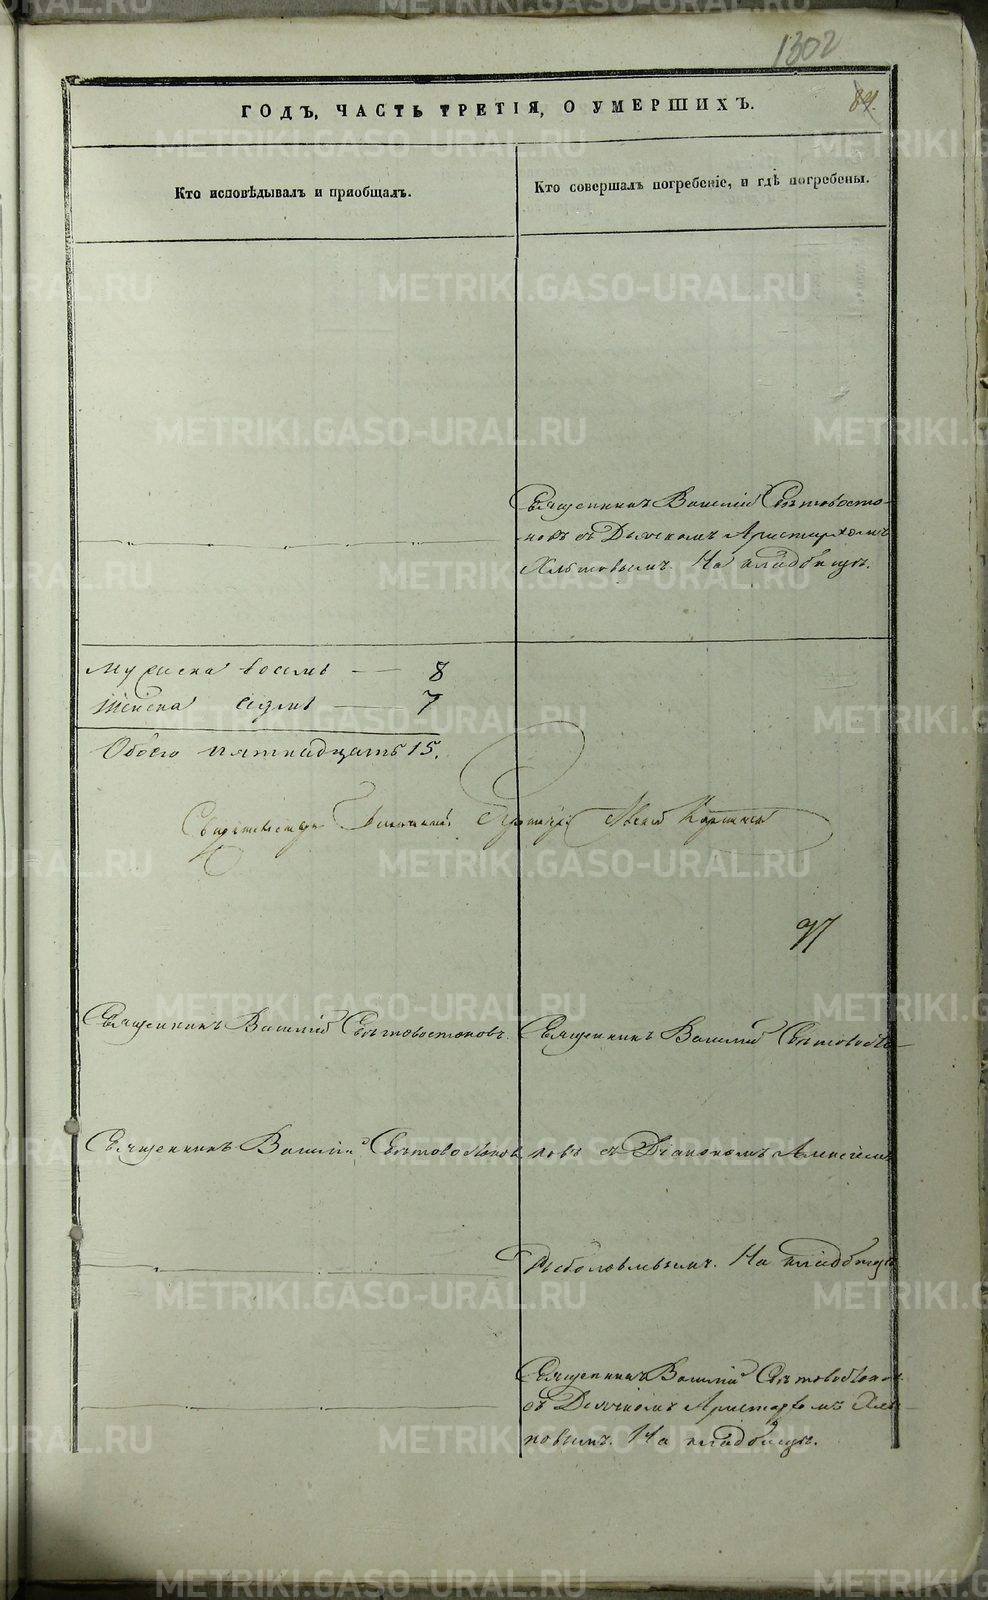 1302
84.
ГОДЪ, ЧАСТЬ ТРЕТІЯ, О УМЕРШИХЪ.
Кто исповѣдывалъ и пріобщалъ.
Кто совершалъ погребеніе, и гдѣ погребены.
Священникъ Василій Свѣтовосто-
ковъ съ Дьячкомъ Аристархомъ
Хлѣповымъ. На кладбищѣ.
Мужеска восемь — 8
Женска седмь — 7
Обоего пятнадцать 15.
97
Священникъ Василій Свѣтовостоковъ.
Священникъ Василій Свѣтовосто-
Священникъ Василій Свѣтовостоковъ
ковъ съ Діакономъ Алексіемъ
На кладбищѣ
Священникъ Василій Свѣтовостоковъ
съ Дьячкомъ Аристархомъ Хлѣ-
повымъ. На кладбищѣ.
METRIKI.GASO-URAL.RU